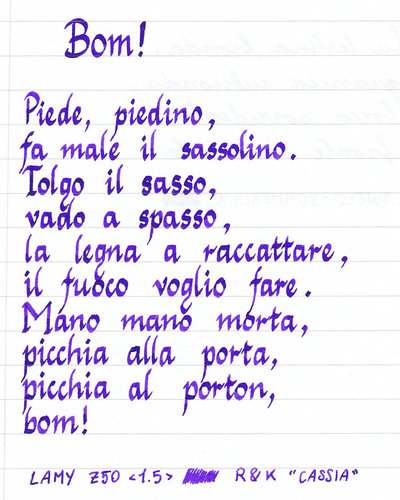 Bom!
Piede, piedino,
fa male il sassolino.
Tolgo il sasso,
vado a spasso,
la legna a raccattare,
il fuoco voglio fare.
Mano mano morta,
picchia alla porta,
picchia al porton,
bom!
LAMY Z50 <1.5> R&K "CASSIA"